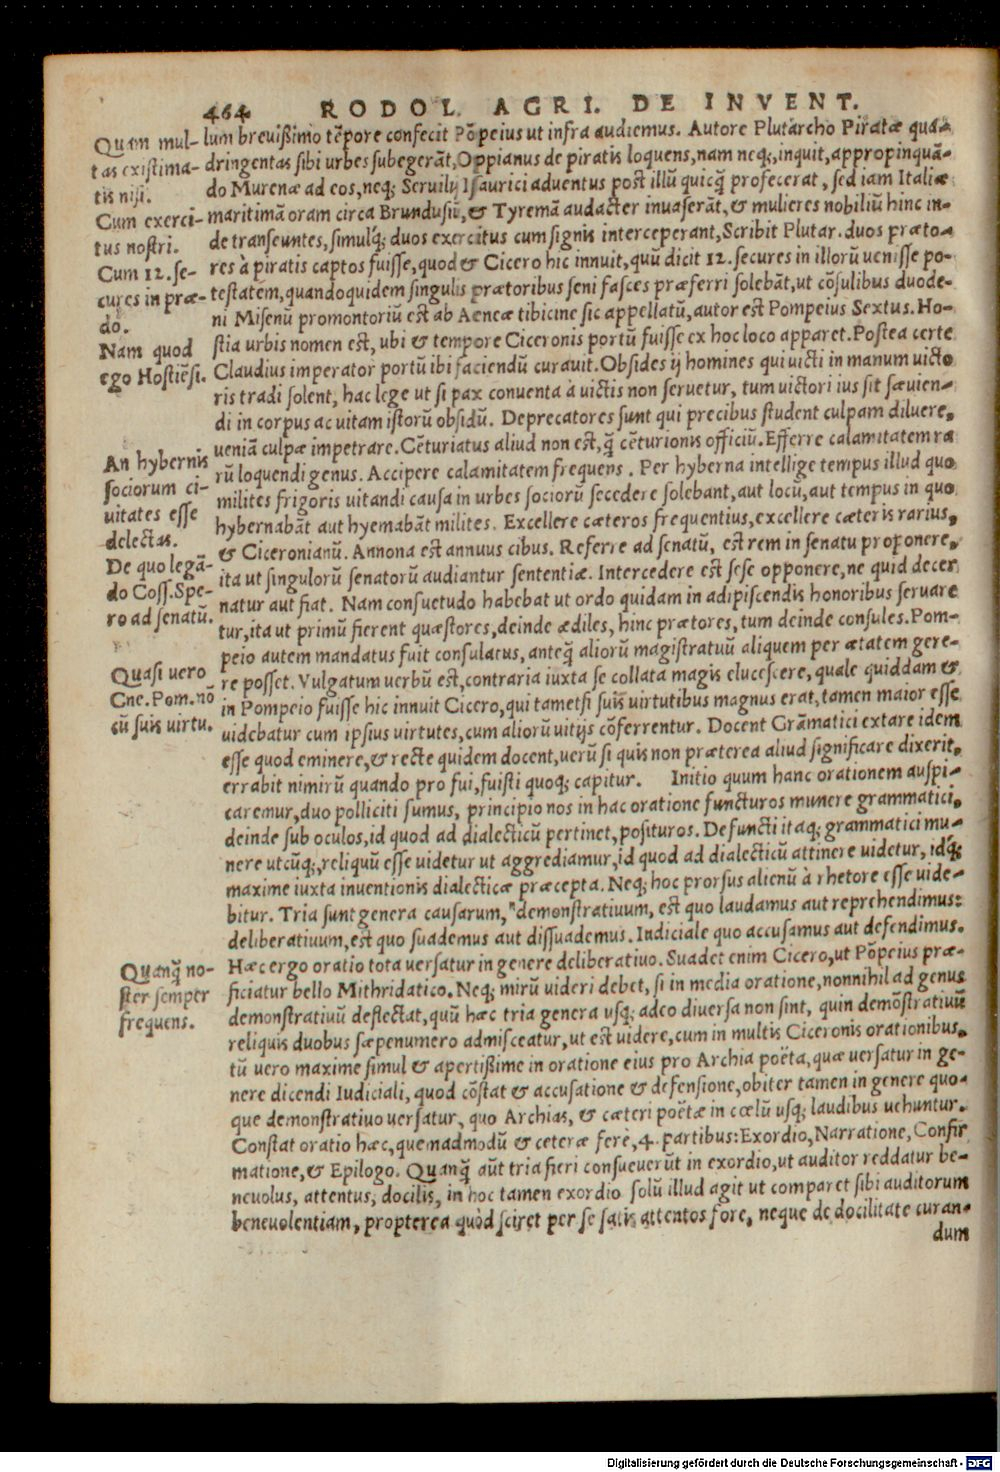 464 RODOL. AGRI. DE INVENT.
Quam mul-
tas existima-
tis nisi.
Cum exerci-
tus nostri.
Cum 12. se-
cures in præ-
do.
Nam quod
ego Hostiẽsi.
An hybernis
sociorum ci-
uitates esse
delectas.
De quo legã-
do Coss. Spe-
ro ad senatũ.
Quasi uero
Cne. Pom. nõ
cũ suis uirtu.
Quanq̃ no-
ster semper
frequens.
lum breuißimo tẽpore confecit Põpeius ut infra audiemus. Autore Plutarcho Piratæ qua-
dringentas sibi urbes subegerãt, Oppianus de piratis loquens, nam neq;, inquit, appropinquã-
do Murenæ ad eos, neq; Seruilij Isaurici aduentus post illũ quicq̃ profecerat, sed iam Italiæ
maritimã oram circa Brundusiũ, & Tyremã audacter inuaserãt, & mulieres nobiliũ hinc in-
de transeuntes, simulq; duos exercitus cum signis interceperant, Scribit Plutar. duos præto-
res à piratis captos fuisse, quod & Cicero hic innuit, quũ dicit 12. secures in illorũ uenisse po-
testatem, quandoquidem singulis prætoribus seni fasces præferri solebãt, ut cõsulibus duode-
ni Misenũ promontoriũ est ab Aeneæ tibicine sic appellatũ, autor est Pompeius Sextus. Ho-
stia urbis nomen est, ubi & tempore Ciceronis portũ fuisse ex hoc loco apparet. Postea certe
Claudius imperator portũ ibi faciendũ curauit. Obsides ij homines qui uicti in manum uicto
ris tradi solent, hac lege ut si pax conuenta à uictis non seruetur, tum uictori ius sit sæuien-
di in corpus ac uitam istorũ obsidũ. Deprecatores sunt qui precibus student culpam diluere,
ueniã culpæ impetrare. Cẽturiatus aliud non est, q̃ cẽturionis officiũ. Efferre calamitatem ra
rũ loquendi genus. Accipere calamitatem frequens. Per hyberna intellige tempus illud quo
milites frigoris uitandi causa in urbes sociorũ secedere solebant, aut locũ, aut tempus in quo
hybernabãt aut hyemabãt milites. Excellere cæteros frequentius, excellere cæteris rarius,
& Ciceronianũ. Annona est annuus cibus. Referre ad senatũ, est rem in senatu proponere,
ita ut singulorũ senatorũ audiantur sententiæ. Intercedere est sese opponere, ne quid decer
natur aut fiat. Nam consuetudo habebat ut ordo quidam in adipiscendis honoribus seruare
tur, ita ut primũ fierent quæstores, deinde ædiles, hinc prætores, tum deinde consules. Pom-
peio autem mandatus fuit consulatus, anteq̃ aliorũ magistratuũ aliquem per ætatem gere-
re posset. Vulgatum uerbũ est, contraria iuxta se collata magis elucescere, quale quiddam &
in Pompeio fuisse hic innuit Cicero, qui tametsi suis uirtutibus magnus erat, tamen maior esse
uidebatur cum ipsius uirtutes, cum aliorũ uitijs cõferrentur. Docent Grãmatici extare idem
esse quod eminere, & recte quidem docent, uerũ si quis non præterea aliud significare dixerit,
errabit nimirũ quando pro fui, fuisti quoq; capitur. Initio quum hanc orationem auspi-
caremur, duo polliciti sumus, principio nos in hac oratione functuros munere grammatici,
deinde sub oculos, id quod ad dialecticũ pertinet, posituros. Defuncti itaq; grammatici mu-
nere utcũq;, reliquũ esse uidetur ut aggrediamur, id quod ad dialecticũ attinere uidetur, idq;
maxime iuxta inuentionis dialecticæ præcepta. Neq; hoc prorsus alienũ à rhetore esse uide-
bitur. Tria sunt genera causarum, demonstratiuum, est quo laudamus aut reprehendimus:
deliberatiuum, est quo suademus aut dissuademus. Iudiciale quo accusamus aut defendimus.
Hæc ergo oratio tota uersatur in genere deliberatiuo. Suadet enim Cicero, ut Põpeius præ-
ficiatur bello Mithridatico. Neq; mirũ uideri debet, si in media oratione, nonnihil ad genus
demonstratiuũ deflectat, quũ hæc tria genera usq; adeo diuersa non sint, quin demõstratiuũ
reliquis duobus sæpenumero admisceatur, ut est uidere, cum in multis Ciceronis orationibus,
tũ uero maxime simul & apertißime in oratione eius pro Archia poëta, quæ uersatur in ge-
nere dicendi Iudiciali, quod cõstat & accusatione & defensione, obiter tamen in genere quo-
que demonstratiuo uersatur, quo Archias, & cæteri poëtæ in cœlũ usq; laudibus uehuntur.
Constat oratio hæc, quemadmodũ & ceteræ ferè, 4. partibus: Exordio, Narratione, Confir
matione, & Epilogo. Quanq̃ aũt tria fieri consueuerũt in exordio, ut auditor reddatur be-
neuolus, attentus, docilis, in hoc tamen exordio solũ illud agit ut comparet sibi auditorum
beneuolentiam, propterea quòd sciret per se satis attentos fore, neque de docilitate curan-
dum
Digitalisierung gefördert durch die Deutsche Forschungsgemeinschaft - DFG